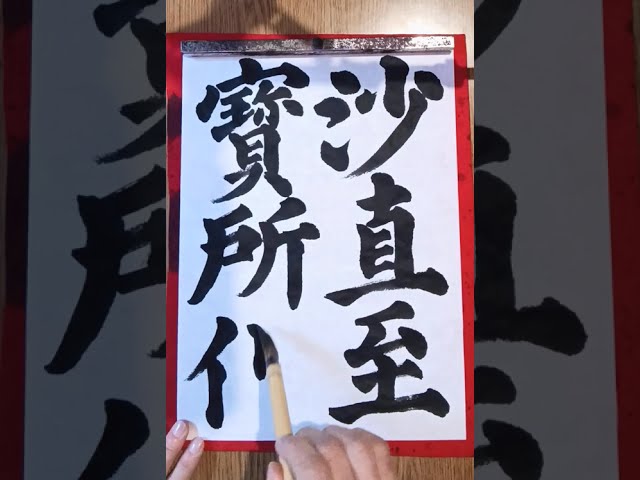 沙直至
寶所